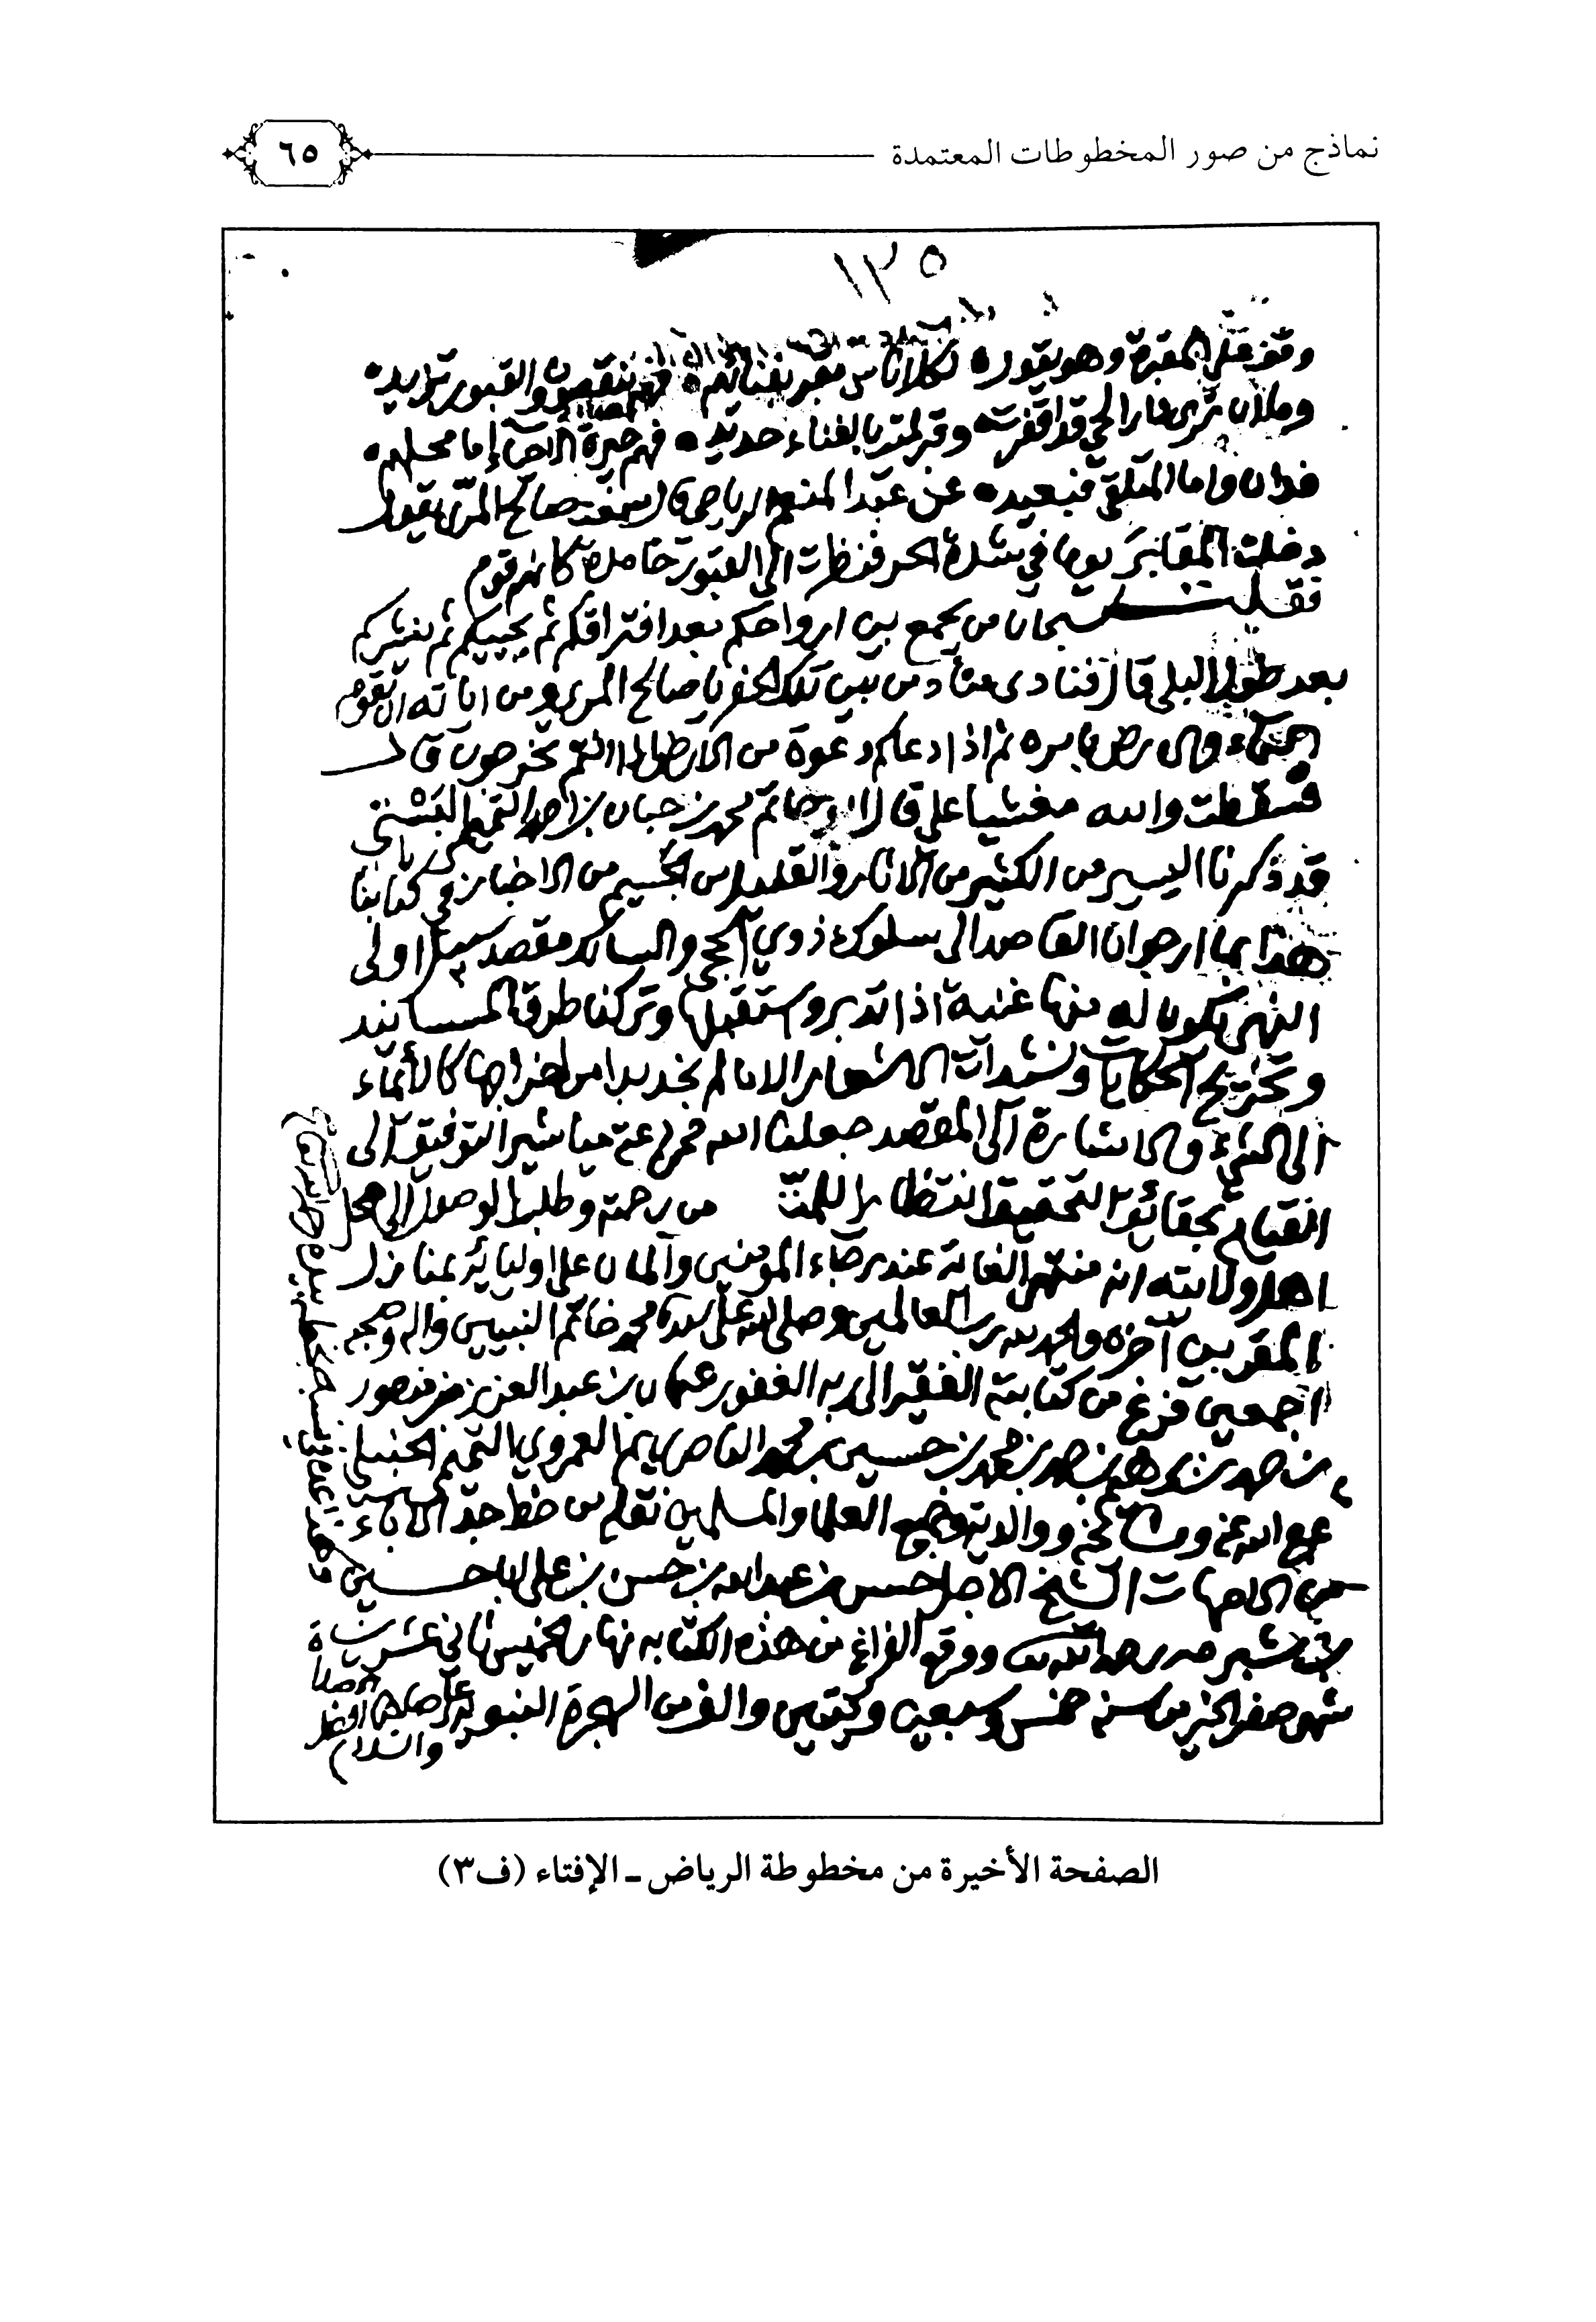 نماذج من صور المخطوطات المعتمدة
٦٥
١٣٥
وقف على المقبرة وهو يقول لكل اناس مقبر بفنائهم فهم ينقصون والقبور تزايد
وما ان ترى دار الحي قد اقفرت وقبر لميت بالفناء جديد فهم جيرة الاحياء اما محلهم
فدان واما الملتقى فبعيد عن عبد المنعم الرياحي قال سمعت صالح المري يقول
دخلت المقابر يوما في شدة الحر فنظرت الى القبور خامدة كانهم قوم
فقلت سبحان من يجمع بين ارواحكم بعد افتراقكم ثم يحييكم ثم ينشركم
بعد طول البلى قال فنادى مناد من بين تلك الحفر يا صالح المري ومن اياته ان تقوم
السماء والارض بامره ثم اذا دعاكم دعوة من الارض اذا انتم تخرجون قال
فسقطت والله مغشيا علي قال ابو حاتم محمد بن حبان بن احمد التميمي البستي
قد ذكرنا اليسير من الكثير من الاثار والقليل من الجسيم من الاخبار في كتابنا
هذا بما ارجو ان القاصد الى سلوك ذوي الحجى والسالك مقصد سبيل اولي
النهى يكون له منها غنية اذا تدبر واستقبلها وتركنا طرق المسانيد
وتخريج الحكايات ونشدات الاشعار الا ما لم نجد بدا من اخراجها كالايماء
الى الشيء والاشارة الى المقصد جعلنا الله ممن دعته مباشير التوفيق الى
القيام بحقائق التحقيق انتظارا للمنة من رحمته وطلب الوصول الى محل
اهل ولايته انه منتهى الغاية عند رجاء المؤمنين والمان على اوليائه بمنازل
المقربين اخره والحمد لله رب العالمين وصلى الله على سيدنا محمد خاتم النبيين واله وصحبه
اجمعين فرغ من كتابته الفقير الى ربه الغفور عثمان بن عبد العزيز بن منصور
بن حمد بن ابراهيم بن حمد بن محمد بن حسين بن محمد الناصري العمروي التميمي الحنبلي
عفى الله عنه ومشائخه ووالديه وجميع العلما والمسلمين نقله من خط جد الاباء
من الامهات الشيخ الاجل حسن بن عبد الله بن حسن بن علي اباحسين
ووقع الفراغ من هذه الكتابه نهار الخميس ثاني عشر
شهر صفر الخير من سنة خمس وسبعين ومئتين والف من الهجرة النبوية على صاحبها افضل الصلاة
والسلام
الصفحة الأخيرة من مخطوطة الرياض ـ الإفتاء (ف٣)